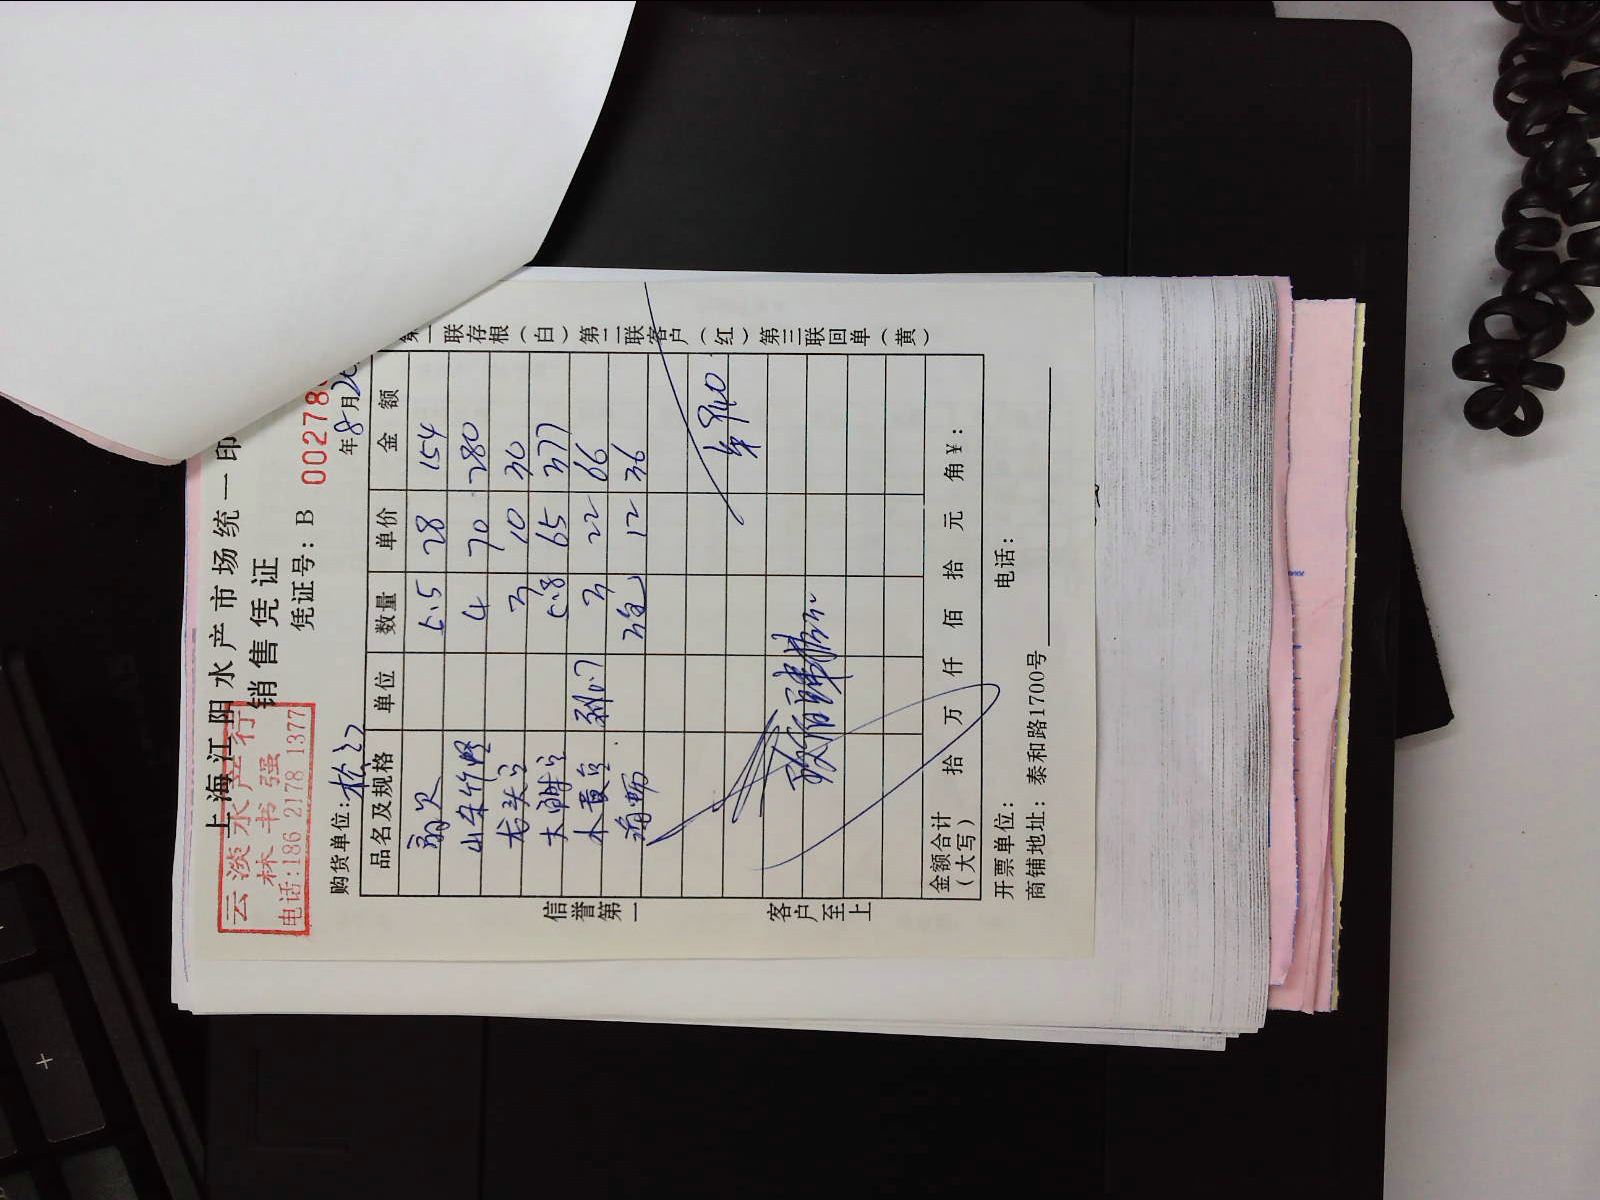 上海江阳水产市场统一印
销售凭证
云淡水产行
林书强
电话:186 2178 1377
凭证号: B 00278
购货单位: 松江 年8月2
品名及规格 单位 数量 单价 金额
5.5 28 154
山东竹蛏 4 70 280
龙头 3 10 30
大明 5.8 65 377
小黄鱼 3 22 66
海蛎 3包 12 36
940
金额合计
(大写) 拾 万 仟 佰 拾 元 角 ¥:
开票单位: 电话:
商铺地址: 泰和路1700号
信誉第一 客户至上
第一联存根(白)第二联客户(红)第三联回单(黄)
+